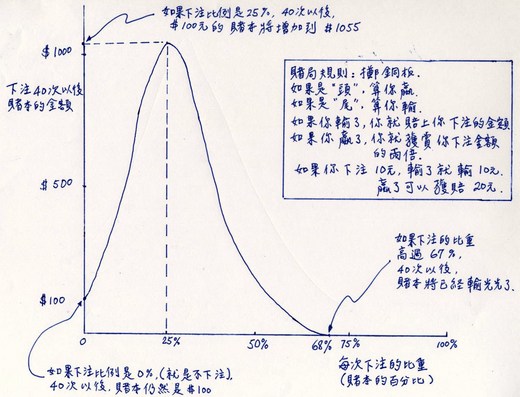 如果下注比例是25%, 40次以後,
$100元的賭本將增加到 $1055
$1000
下注40次以後
賭本的金額
$500
$100
0
25%
50%
68%
75%
100%
每次下注的比重
(賭本的百分比)
賭局規則: 擲銅板.
如果是"頭", 算你贏
如果是"尾", 算你輸.
如果你輸了, 你就賠上你下注的金額
如果你贏了, 你就獲賞你下注金額
的兩倍.
如果你下注10元, 輸了就輸10元.
贏了可以獲賠20元.
如果下注的比重
高過67%,
40次以後,
賭本將已經輸光光了.
如果下注比例是0%, (就是不下注),
40次以後, 賭本仍然是$100